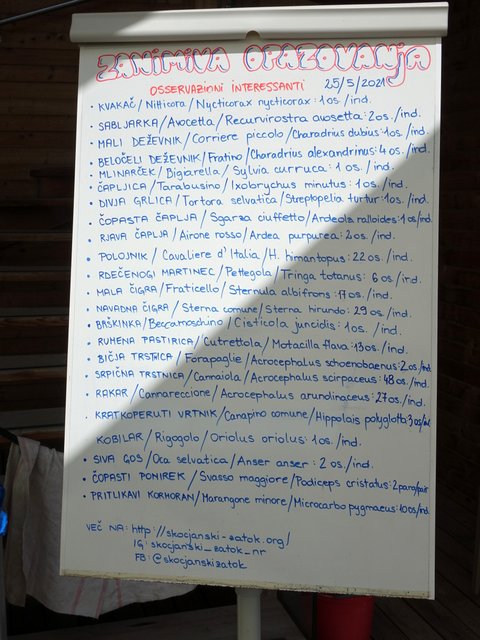 ZANIMIVA OPAZOVANJA
OSSERVAZIONI INTERESSANTI 25/5/2021
• KVAKAČ/Nitticora/Nycticorax nycticorax: 1os./ind.
• SABLJARKA/Avocetta/Recurvirostra avosetta: 2os./ind.
• MALI DEŽEVNIK/Corriere piccolo/Charadrius dubius: 1os./ind.
• BELOČELI DEŽEVNIK/Fratino/Charadrius alexandrinus: 4 os./ind.
• MLINARČEK/Bigiarella/Sylvia curruca: 1 os./ind.
• ČAPLJICA/Tarabusino/Ixobrychus minutus: 1 os./ind.
• DIVJA GRLICA/Tortora selvatica/Streptopelia turtur: 1os./ind.
• ČOPASTA ČAPLJA/Sgarza ciuffetto/Ardeola ralloides: 1os/ind.
• RJAVA ČAPLJA/Airone rosso/Ardea purpurea: 2os./ind.
• POLOJNIK/Cavaliere d'Italia/H. himantopus: 22 os./ind.
• RDEČENOGI MARTINEC/Pettegola/Tringa totanus: 6 os/ind.
• MALA ČIGRA/Fraticello/Sternula albifrons: 17os./ind.
• NAVADNA ČIGRA/Sterna comune/Sterna hirundo: 29 os./ind.
• BRŠKINKA/Beccamoschino/Cisticola juncidis: 1os./ind.
• RUMENA PASTIRICA/Cutrettola/Motacilla flava: 13os./ind.
• BIČJA TRSTNICA/Forapaglie/Acrocephalus schoenobaenus: 2os./ind.
• SRPIČNA TRSTNICA/Cannaiola/Acrocephalus scirpaceus: 48 os./ind.
• RAKAR/Cannareccione/Acrocephalus arundinaceus: 27os./ind.
• KRATKOPERUTI VRTNIK/Canapino comune/Hippolais polyglotta: 3os/ind.
KOBILAR/Rigogolo/Oriolus oriolus: 1os./ind.
• SIVA GOS/Oca selvatica/Anser anser: 2 os./ind.
• ČOPASTI PONIREK/Svasso maggiore/Podiceps cristatus: 2para/pair
• PRITLIKAVI KORMORAN/Marangone minore/Microcarbo pygmaeus: 10os/ind.
VEČ NA: http://skocjanski-zatok.org/
IG: skocjanski_zatok_nr
FB: @skocjanskizatok